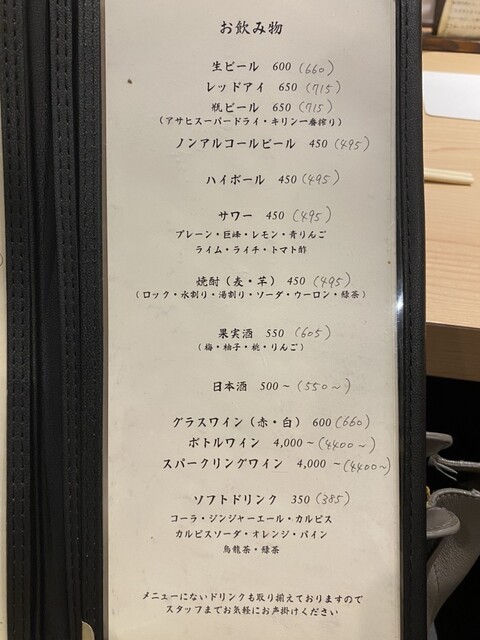 お飲み物
生ビール 600 (660)
レッドアイ 650 (715)
瓶ビール 650 (715)
(アサヒスーパードライ・キリン一番搾り)
ノンアルコールビール 450 (495)
ハイボール 450 (495)
サワー 450 (495)
プレーン・巨峰・レモン・青りんご
ライム・ライチ・トマト酢
焼酎(麦・芋) 450 (495)
(ロック・水割り・湯割り・ソーダ・ウーロン・緑茶)
果実酒 550 (605)
(梅・柚子・桃・りんご)
日本酒 500～ (550～)
グラスワイン(赤・白) 600 (660)
ボトルワイン 4,000～ (4400～)
スパークリングワイン 4,000～ (4400～)
ソフトドリンク 350 (385)
コーラ・ジンジャーエール・カルピス
カルピスソーダ・オレンジ・パイン
烏龍茶・緑茶
メニューにないドリンクも取り揃えておりますので
スタッフまでお気軽にお声掛けください